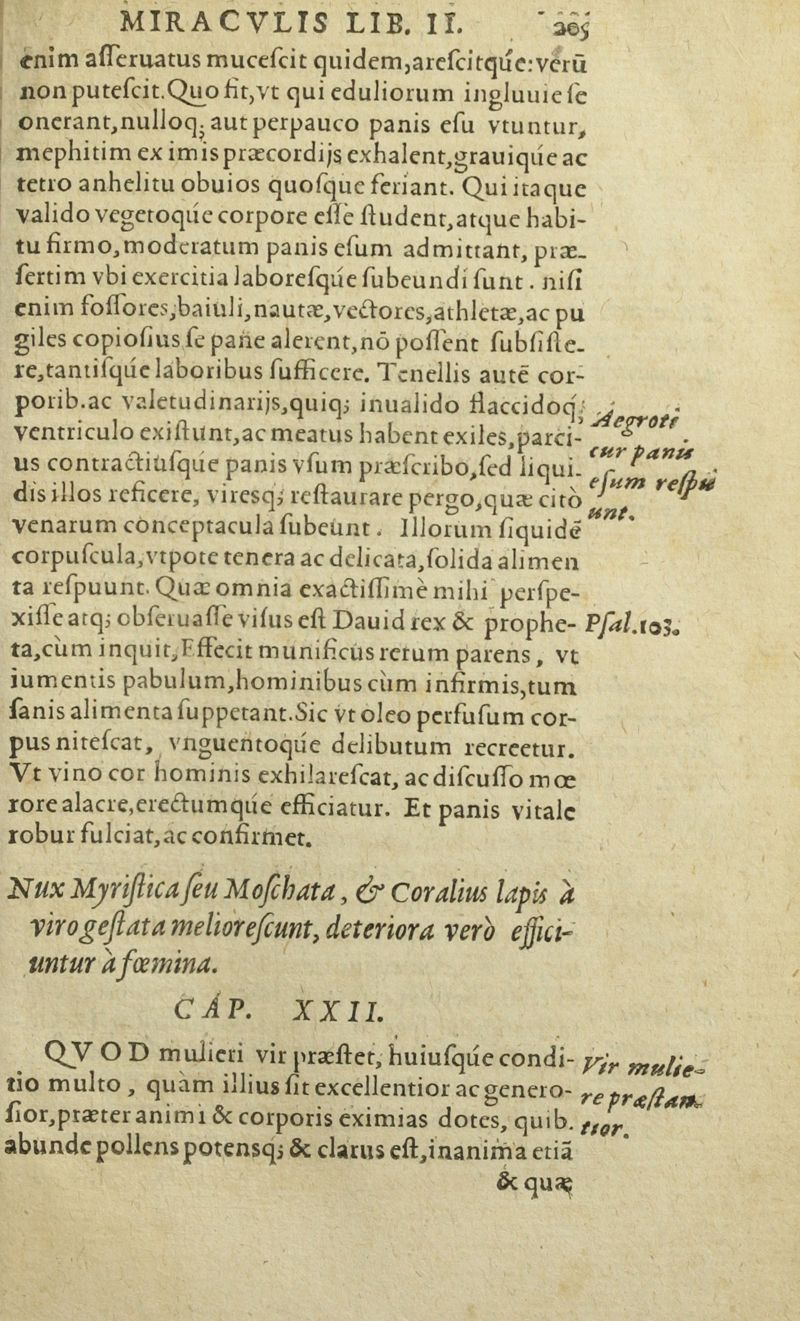 MIRACVLIS LIB. II. 265
enim aſſeruatus muceſcit quidem,areſcitq́ue:verū
non puteſcit.Quo fit,vt qui eduliorum ingluuie ſe
onerant,nulloq; aut perpauco panis eſu vtuntur,
mephitim ex imis præcordijs exhalent,grauiq́ue ac
tetro anhelitu obuios quoſque feriant. Qui itaque
valido vegetoq́ue corpore eſſe ſtudent,atque habi-
tu firmo,moderatum panis eſum admittant, præ-
ſertim vbi exercitia laboreſq́ue ſubeundi ſunt. niſi
enim foſſores,baiuli,nautæ,vectores,athletæ,ac pu
giles copioſius ſe pane alerent,nō poſſent ſubſiſte-
re,tantiſq́ue laboribus ſufficere. Tenellis autē cor-
porib.ac valetudinarijs,quiq; inualido flaccidoq;
ventriculo exiſtunt,ac meatus habent exiles,parci-
us contractiuſq́ue panis vſum præſcribo,ſed liqui-
dis illos reficere, viresq; reſtaurare pergo,quæ citò
venarum conceptacula ſubeunt. Illorum ſiquidē
corpuſcula,vtpote tenera ac delicata,ſolida alimen
ta reſpuunt. Quæ omnia exactiſſimè mihi perſpe-
xiſſe atq; obſeruaſſe viſus eſt Dauid rex & prophe-
ta,cùm inquit,Effecit munificus rerum parens, vt
iumentis pabulum,hominibus cùm infirmis,tum
ſanis alimenta ſuppetant.Sic vt oleo perfuſum cor-
pus niteſcat, vnguentoq́ue delibutum recreetur.
Vt vino cor hominis exhilareſcat, ac diſcuſſo mœ
rore alacre,erectumq́ue efficiatur. Et panis vitale
robur fulciat,ac confirmet.
Aegroti
cur panis
eſum reſpu
unt.
Pſal.103.
Nux Myriſtica ſeu Moſchata, & Coralius lapis à
viro geſtata melioreſcunt, deteriora verò effici-
untur à fœmina.
CAP. XXII.
QVOD mulieri vir præſtet, huiuſq́ue condi-
tio multo, quàm illius ſit excellentior ac genero-
ſior,præter animi & corporis eximias dotes, quib.
abunde pollens potensq; & clarus eſt,inanima etiā
Vir mulie-
re præſtan-
tior.
& quæ